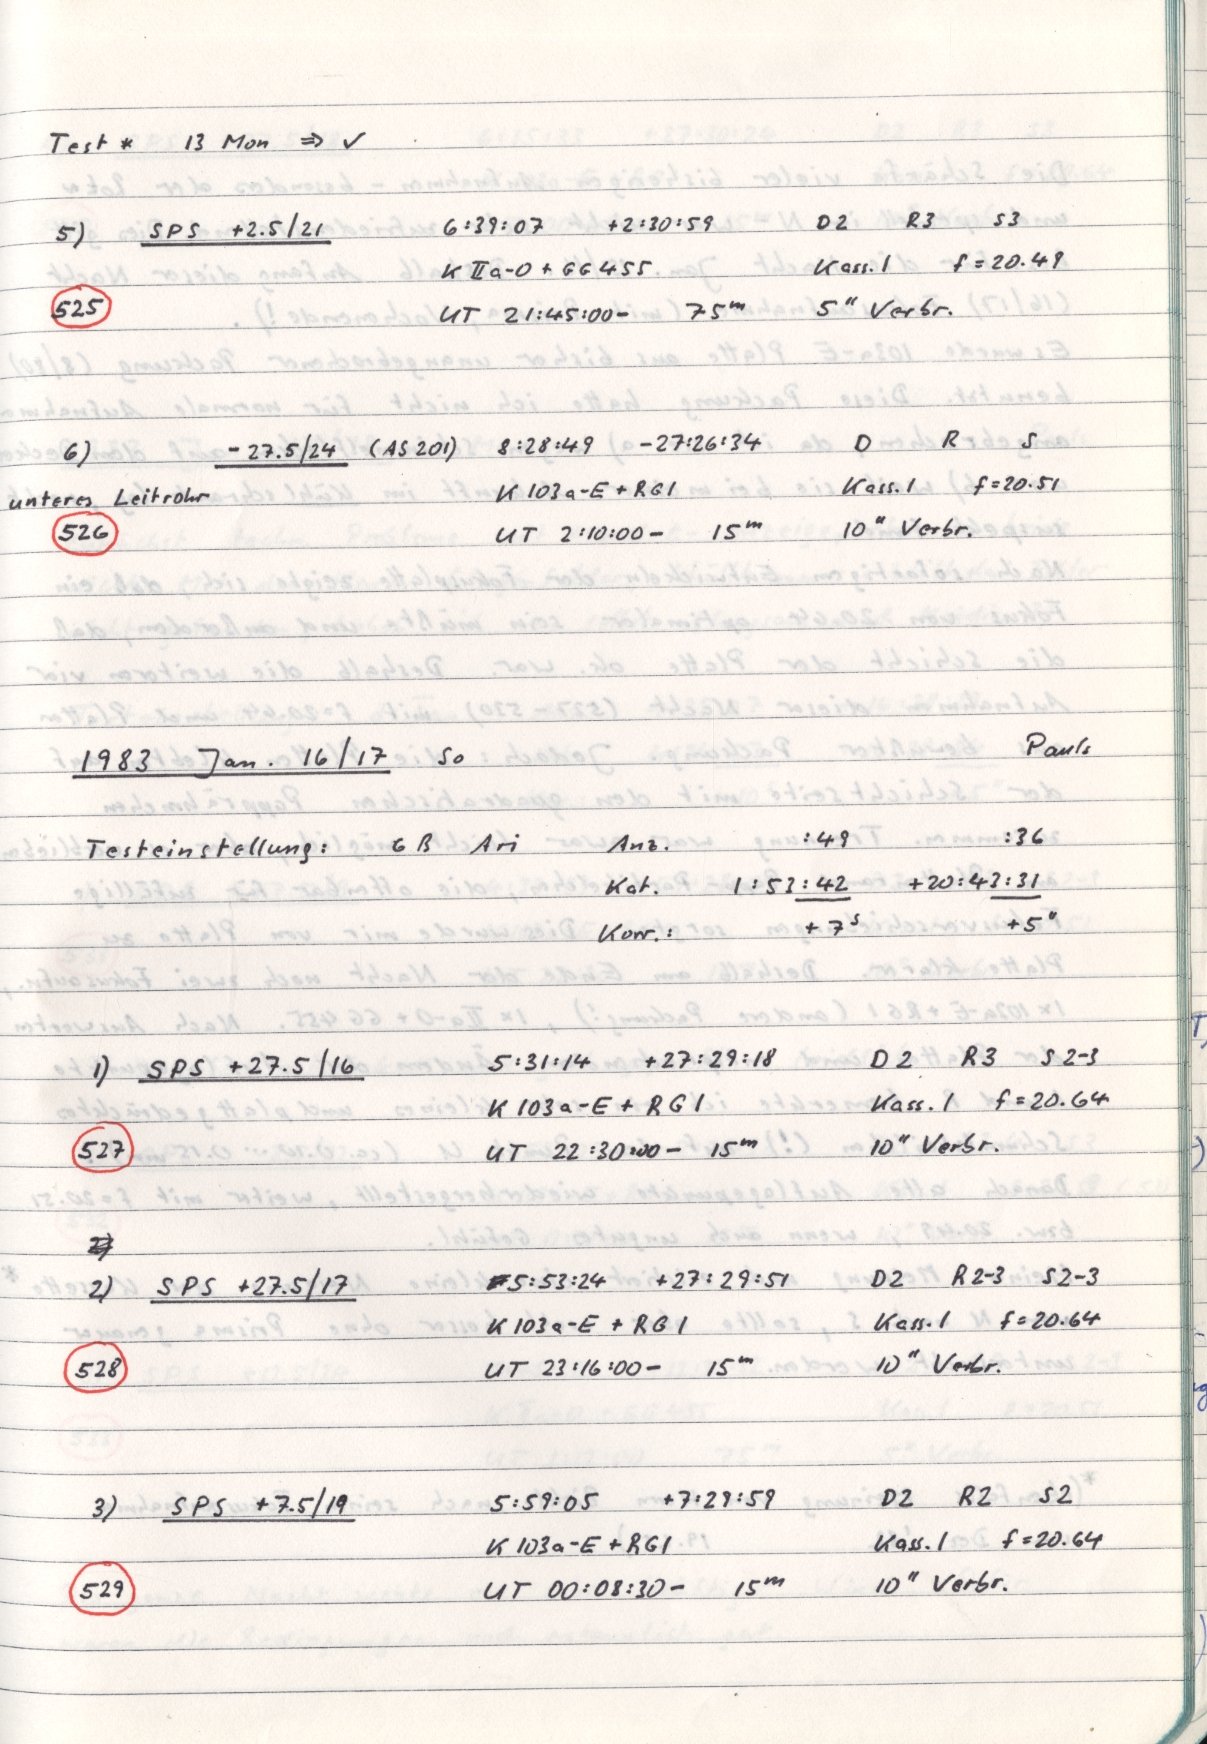 Test * 13 Mon ⇒ ✓
5) SPS +2.5/21 6:39:07 +2:30:59 D2 R3 S3
K IIa-O + GG455 Kass.1 f=20.49
525 UT 21:45:00- 75m 5" Verbr.
6) -27.5/24 (AS201) 8:28:49 -27:26:34 D R S
unteres Leitrohr K 103a-E + RG1 Kass.1 f=20.51
526 UT 2:10:00- 15m 10" Verbr.
1983 Jan. 16/17 So Pauls
Testeinstellung: 6 ß Ari Anz. :49 :36
Kat. 1:53:42 +20:43:31
Korr.: +7s +5"
1) SPS +27.5/16 5:31:14 +27:29:18 D2 R3 S2-3
K 103a-E + RG1 Kass.1 f=20.64
527 UT 22:30:00- 15m 10" Verbr.
2) SPS +27.5/17 5:53:24 +27:29:51 D2 R2-3 S2-3
K 103a-E + RG1 Kass.1 f=20.64
528 UT 23:16:00- 15m 10" Verbr.
3) SPS +7.5/19 5:59:05 +7:29:59 D2 R2 S2
K 103a-E + RG1 Kass.1 f=20.64
529 UT 00:08:30- 15m 10" Verbr.